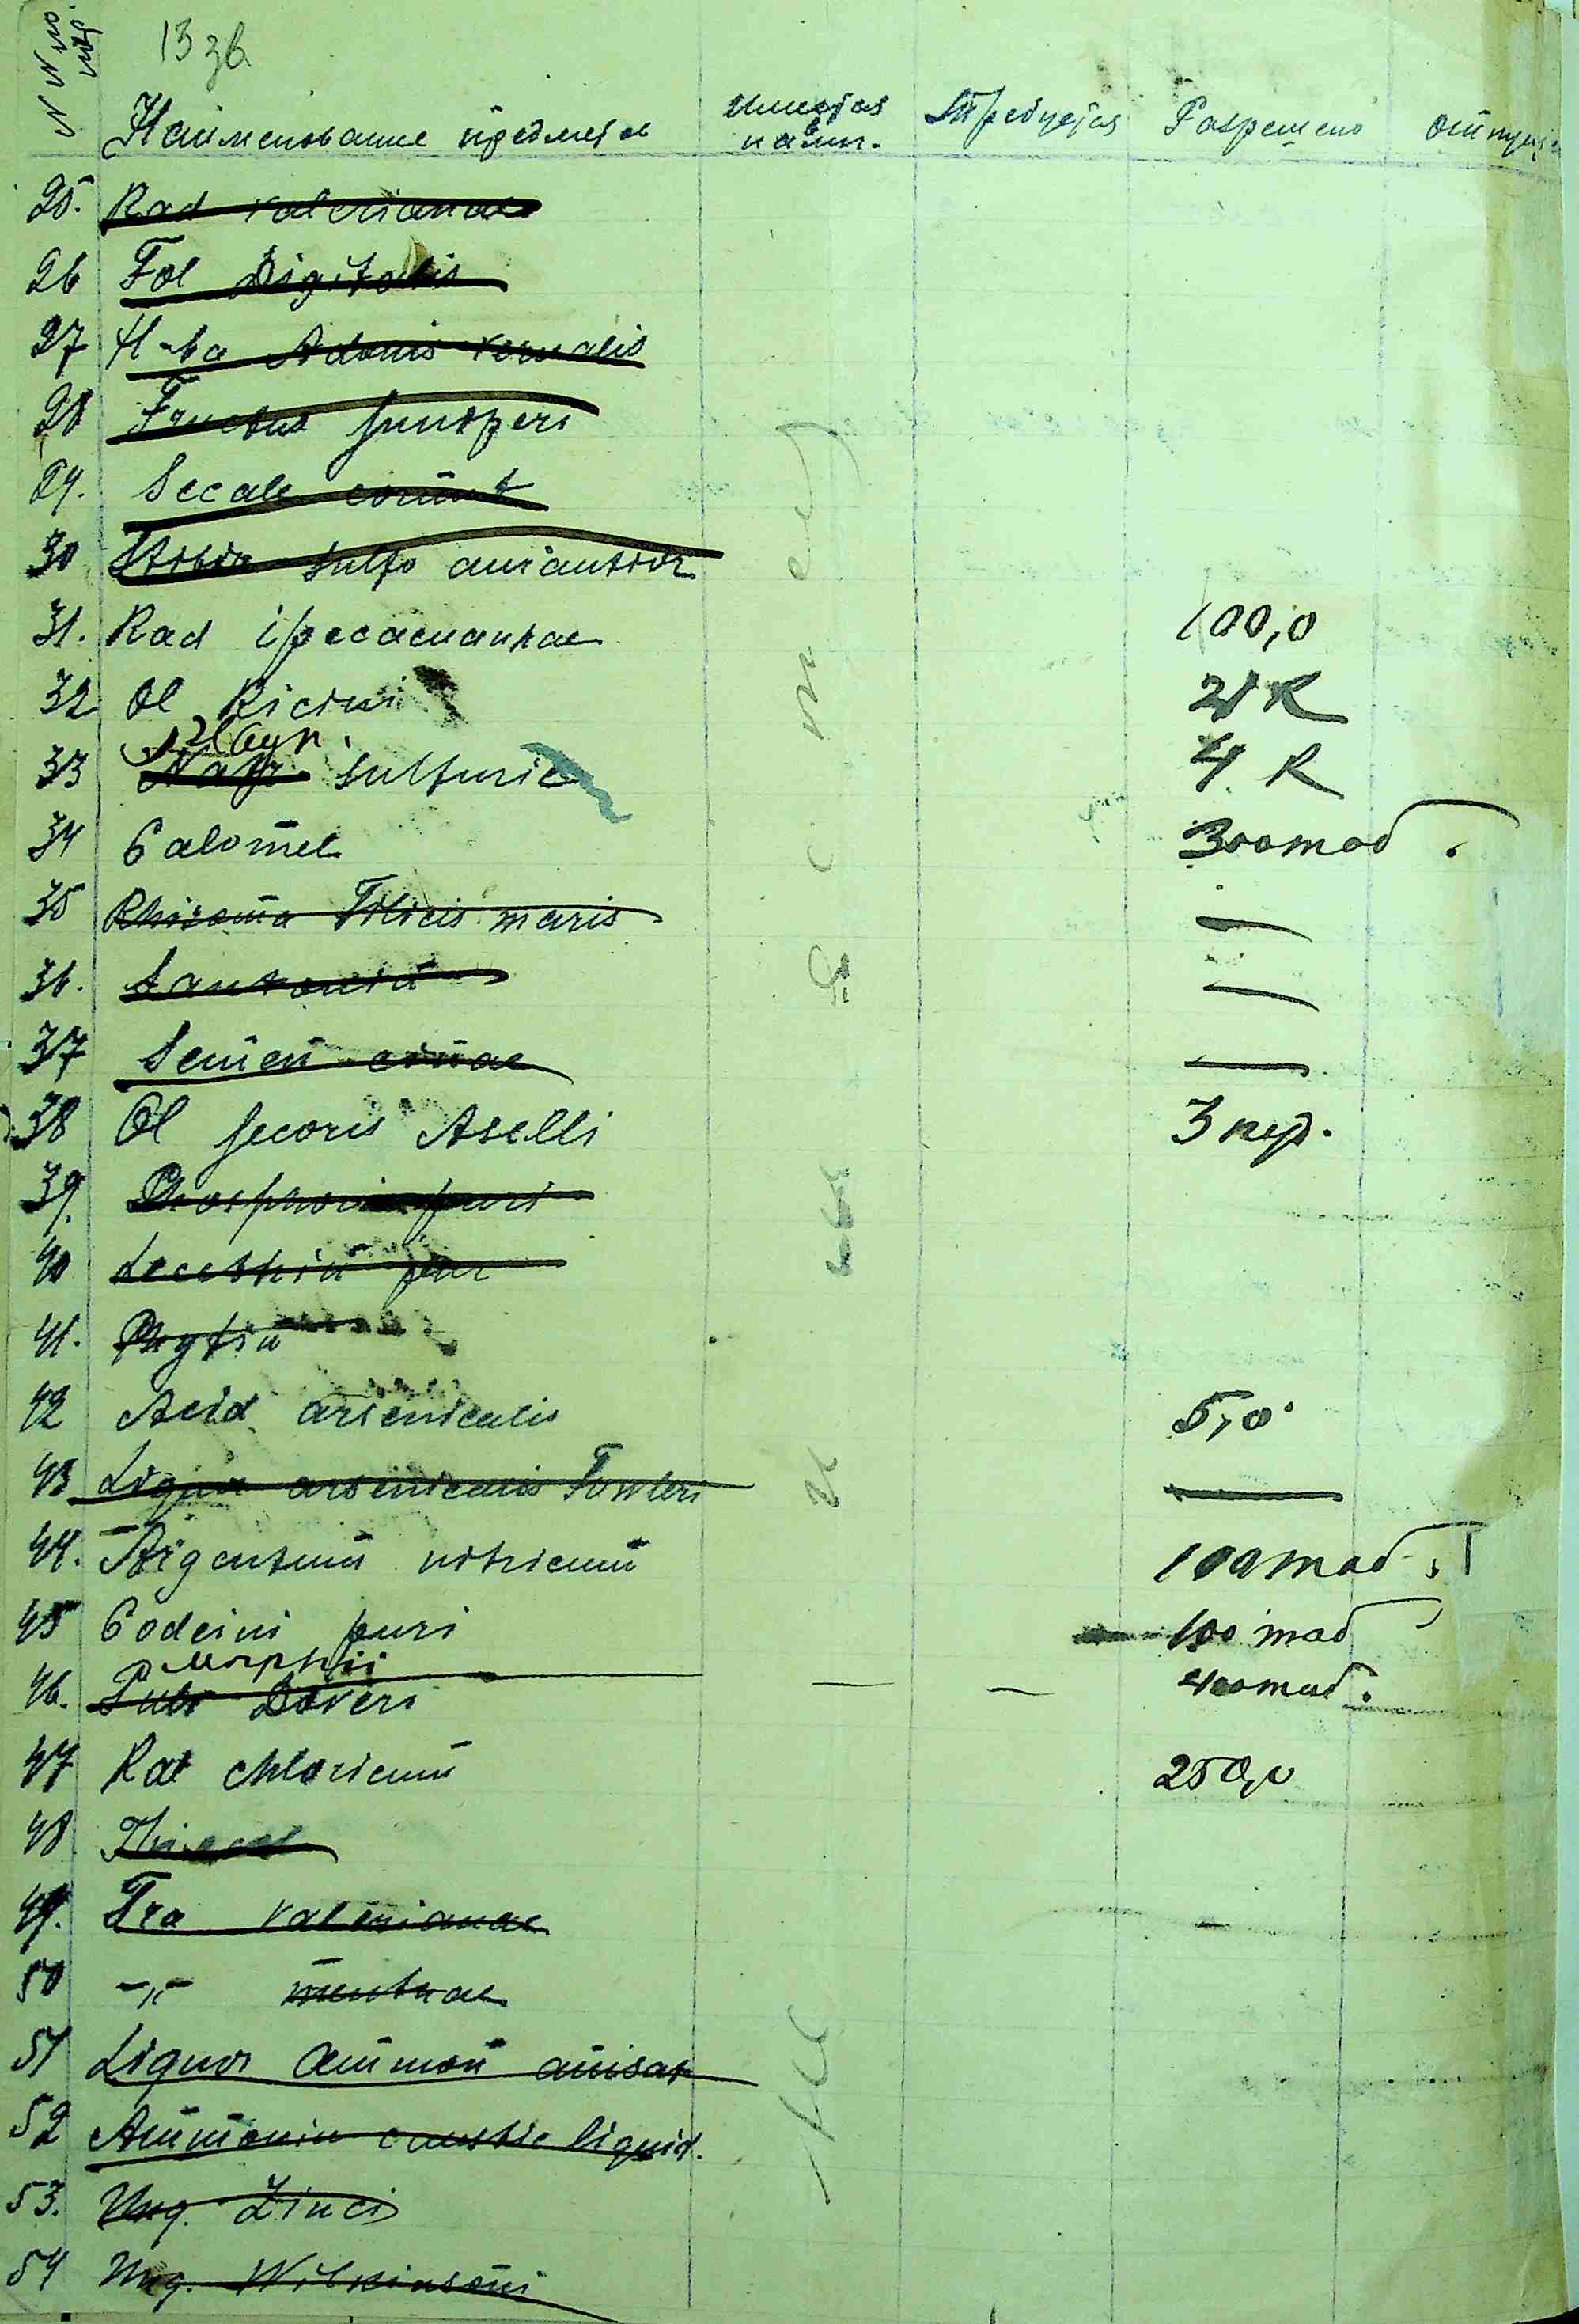 13 зв.
N N по пор.
Наименование предметов Имеется в налич. Требуется Разрешено Отпущено
25. Rad valerianae
26 Fol Digitalis
27 H-ba Adonis vernalis
28 Fructus Juniperi
29. Secale cornut
30 Stibia sulfo aurantior
31. Rad ipecacuanhae 100,0
32 Ol Ricini 2 К
33 Natr sulfuric 4 К
34 Calomel 300 таб.
35 Rhizoma Filicis maris —
36. Santonin —
37 Semen cinae —
38 Ol Jecoris Aselli 3 кгр.
39. Phosphori puri
40 Lecithin pur
41. Phytin
42 Acid arsenicalis 5,0
43 Liquor arsenicalis Fowleri —
44. Argentum nitricum 100 таб.
45 Codeini puri 100 таб
Morphii
46. Pulv Doveri — — 400 таб.
47 Kal chloricum 250,0
48 Thiocol
49. Tra valerianae
50 -„- menthae
51 Liquor ammon anisat
52 Ammonia caustic liquid.
53. Ung. Zinci
54 Ung. Wilkinsoni